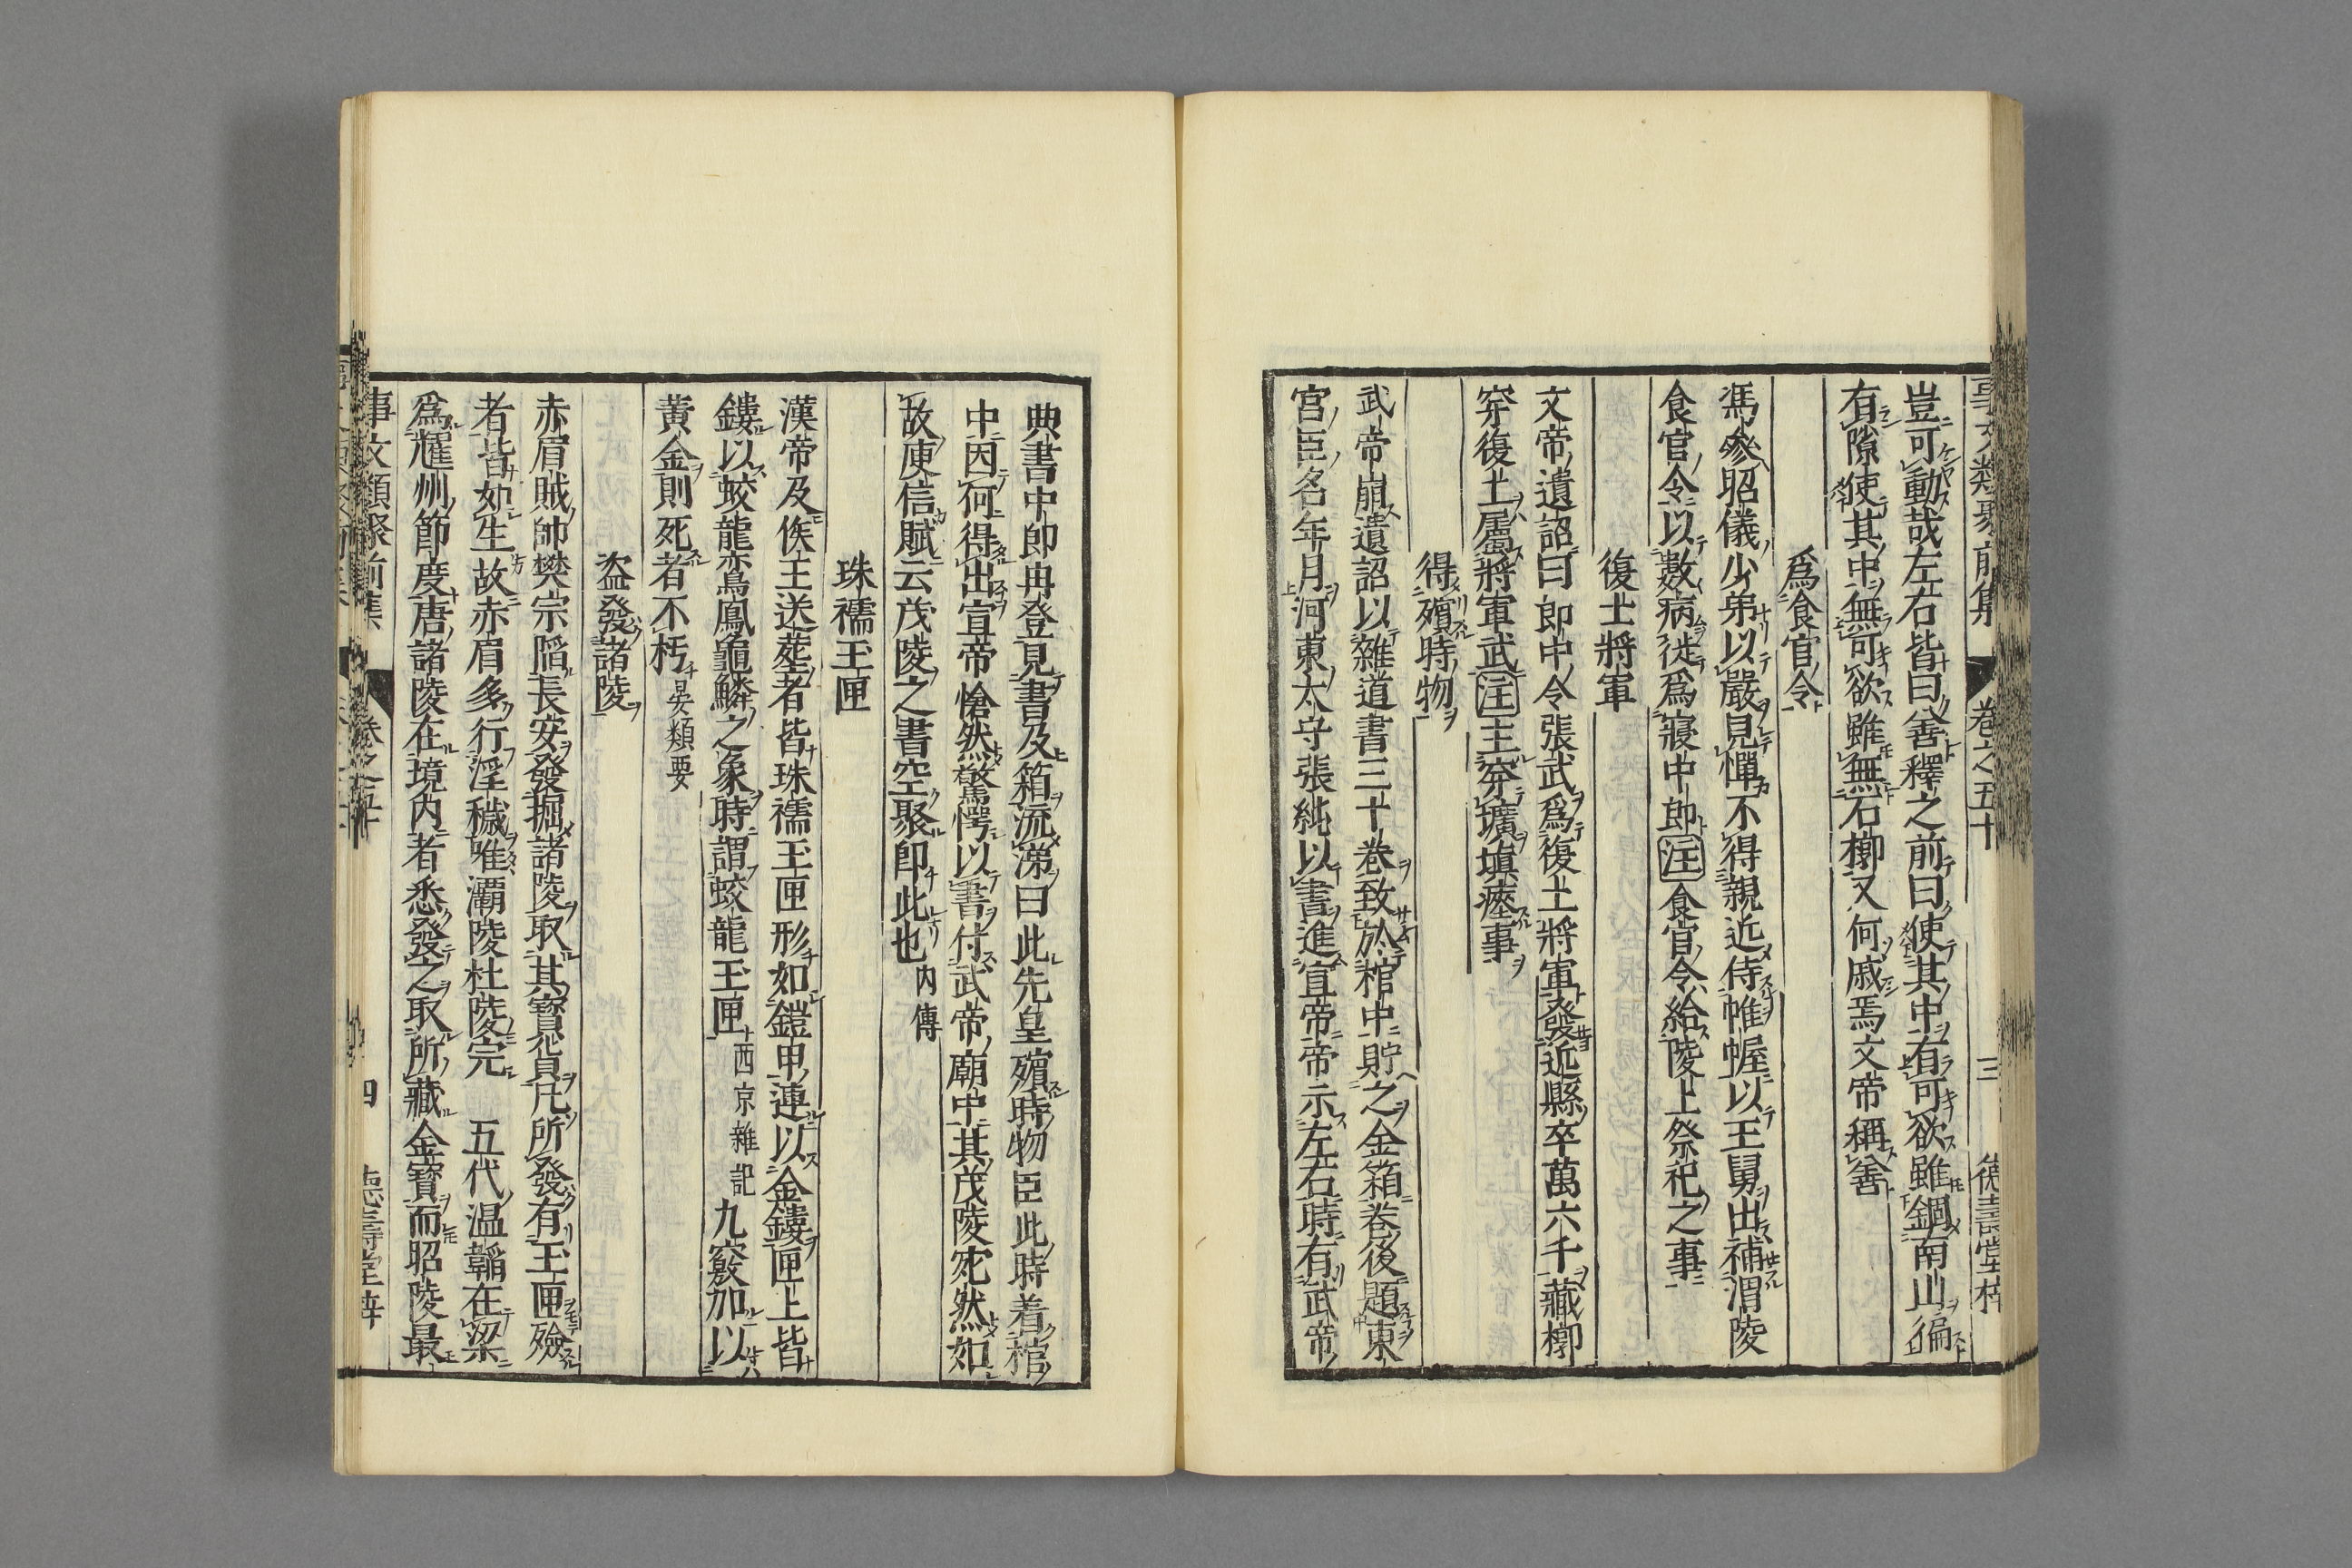 事文類聚前集 卷之五十 三 德壽堂梓
豈可動哉左右皆曰善釋之前曰使其中有可欲雖錮南山徧
有隙使其中無可欲雖無石槨又何戚焉文帝稱善
爲食官令
馮參昭儀少弟以嚴見憚不得親近侍帷幄以王舅出補渭陵
食官令以數病徙爲寢中郎注食官令給陵上祭祀之事
復土將軍
文帝遺詔曰郎中令張武爲復土將軍發近縣卒萬六千藏槨
穿復土屬將軍武注主穿壙塡瘞事
得殯時物
武帝崩遺詔以雜道書三十卷致於棺中貯之金箱卷後題東
宮臣名年月河東太守張純以書進宣帝帝示左右時有武帝
典書中郎冉登見書及箱流涕曰此先皇殯時物臣此時着棺
中因何得出宣帝愴然驚愕以書付武帝廟中其茂陵宛然如
故庾信賦云茂陵之書空聚卽此也内傳
珠襦玉匣
漢帝及侯王送葬者皆珠襦玉匣形如鎧甲連以金鏤匣上皆
鏤以蛟龍鸞鳳龜麟之象時謂蛟龍玉匣西京雜記九竅加以
黄金則死者不朽晏類要
盜發諸陵
赤眉賊帥樊宗陷長安發掘諸陵取其寳貨凡所發有玉匣殮
者皆如生故赤眉多行淫穢唯灞陵杜陵完 五代温韜在梁
爲耀州節度唐諸陵在境内者悉發之取所藏金寶而昭陵最
事文類聚前集 卷之五十 四 德壽堂梓